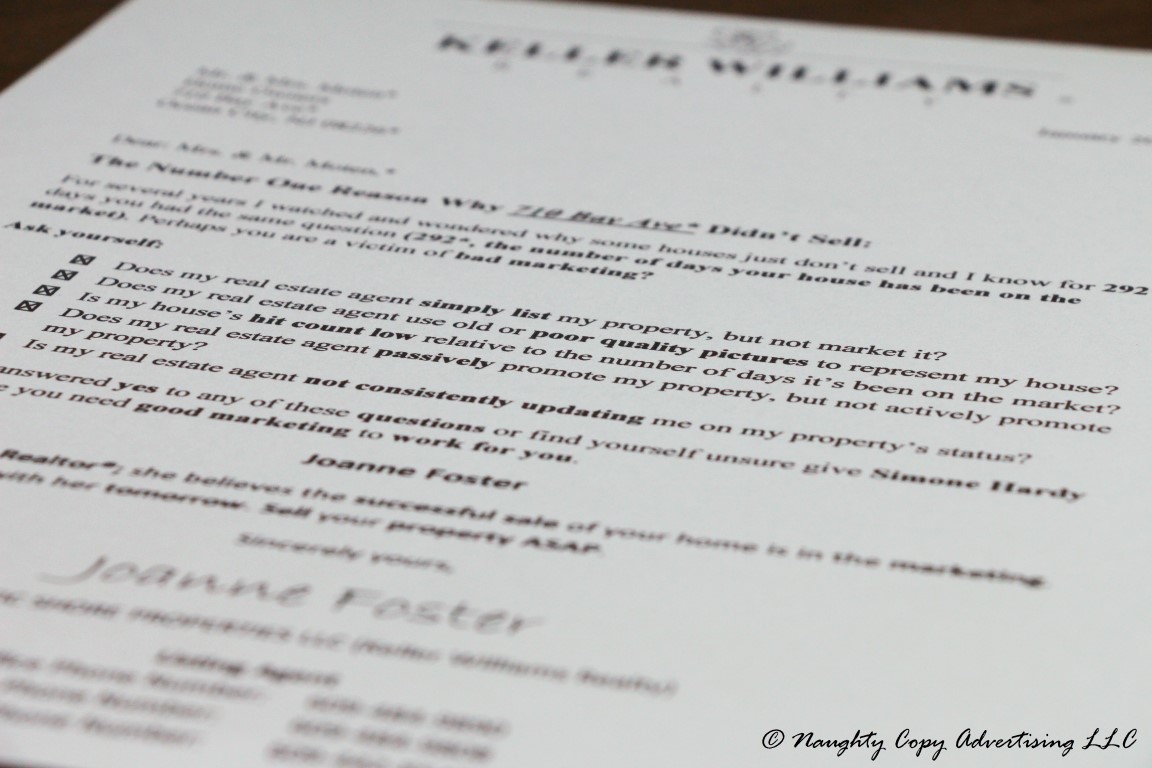 KELLER WILLIAMS
REALTY
Mr. & Mrs.
January
Dear: Mrs. & Mr.
The Number One Reason Why 710 Bay Ave* Didn't Sell:
For several years I watched and wondered why some houses just don't sell and I know for 292
days you had the same question (292*, the number of days your house has been on the
market). Perhaps you are a victim of bad marketing?
Ask yourself:
Does my real estate agent simply list my property, but not market it?
Does my real estate agent use old or poor quality pictures to represent my house?
Is my house's hit count low relative to the number of days it's been on the market?
Does my real estate agent passively promote my property, but not actively promote
my property?
Is my real estate agent not consistently updating me on my property's status?
answered yes to any of these questions or find yourself unsure give Simone Hardy
you need good marketing to work for you.
Joanne Foster
Realtor®; she believes the successful sale of your home is in the marketing.
with her tomorrow. Sell your property ASAP.
Sincerely yours,
Joanne Foster
SHORE PROPERTIES LLC (Keller Williams Realty)
Listing Agent
Phone Number:
Phone Number:
Phone Number:
© Naughty Copy Advertising LLC